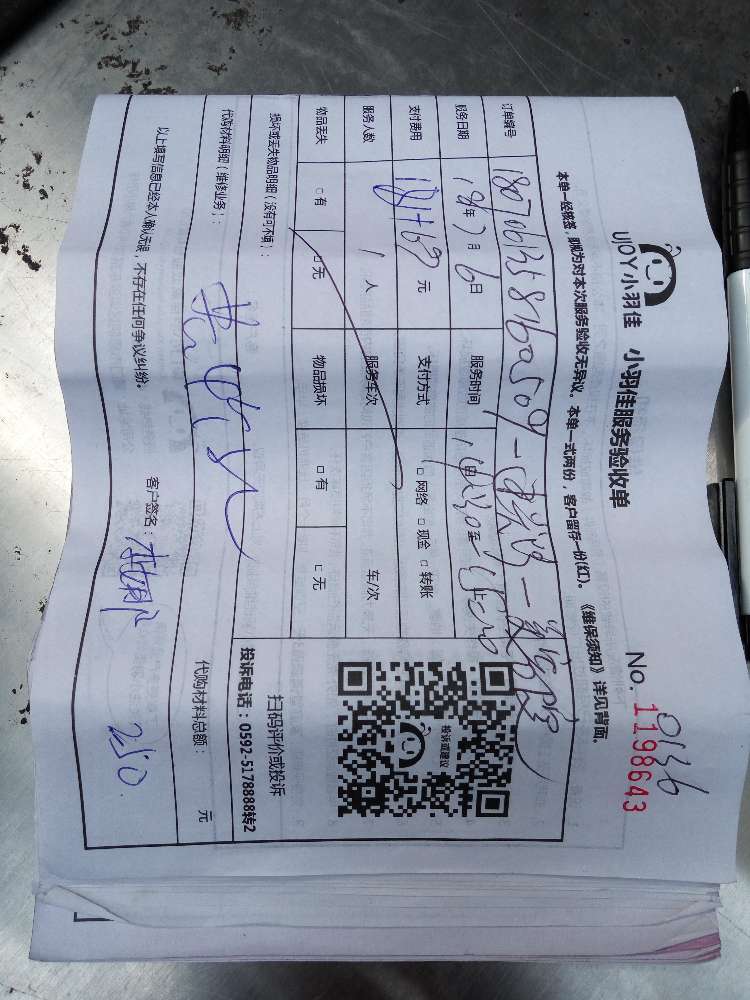 UJOY小羽佳 小羽佳服务验收单
0136
No. 1198643
本单一经核签,即视为对本次服务验收无异议。本单一式两份,客户留存一份(红)。《维保须知》详见背面。
订单编号
服务日期 18年7月6日 服务时间
支付费用 元 支付方式 □网络 □现金 □转账
服务人数 1人 服务车次 车/次
物品丢失 □有 □无 物品损坏 □有 □无
损坏或丢失物品明细(没有可不填):
代购材料明细(维修业务):
代购材料总额: 元
以上填写信息已经本人确认无误,不存在任何争议纠纷。 客户签名:
250
投诉或建议
扫码评价或投诉
投诉电话:0592-5178888转2